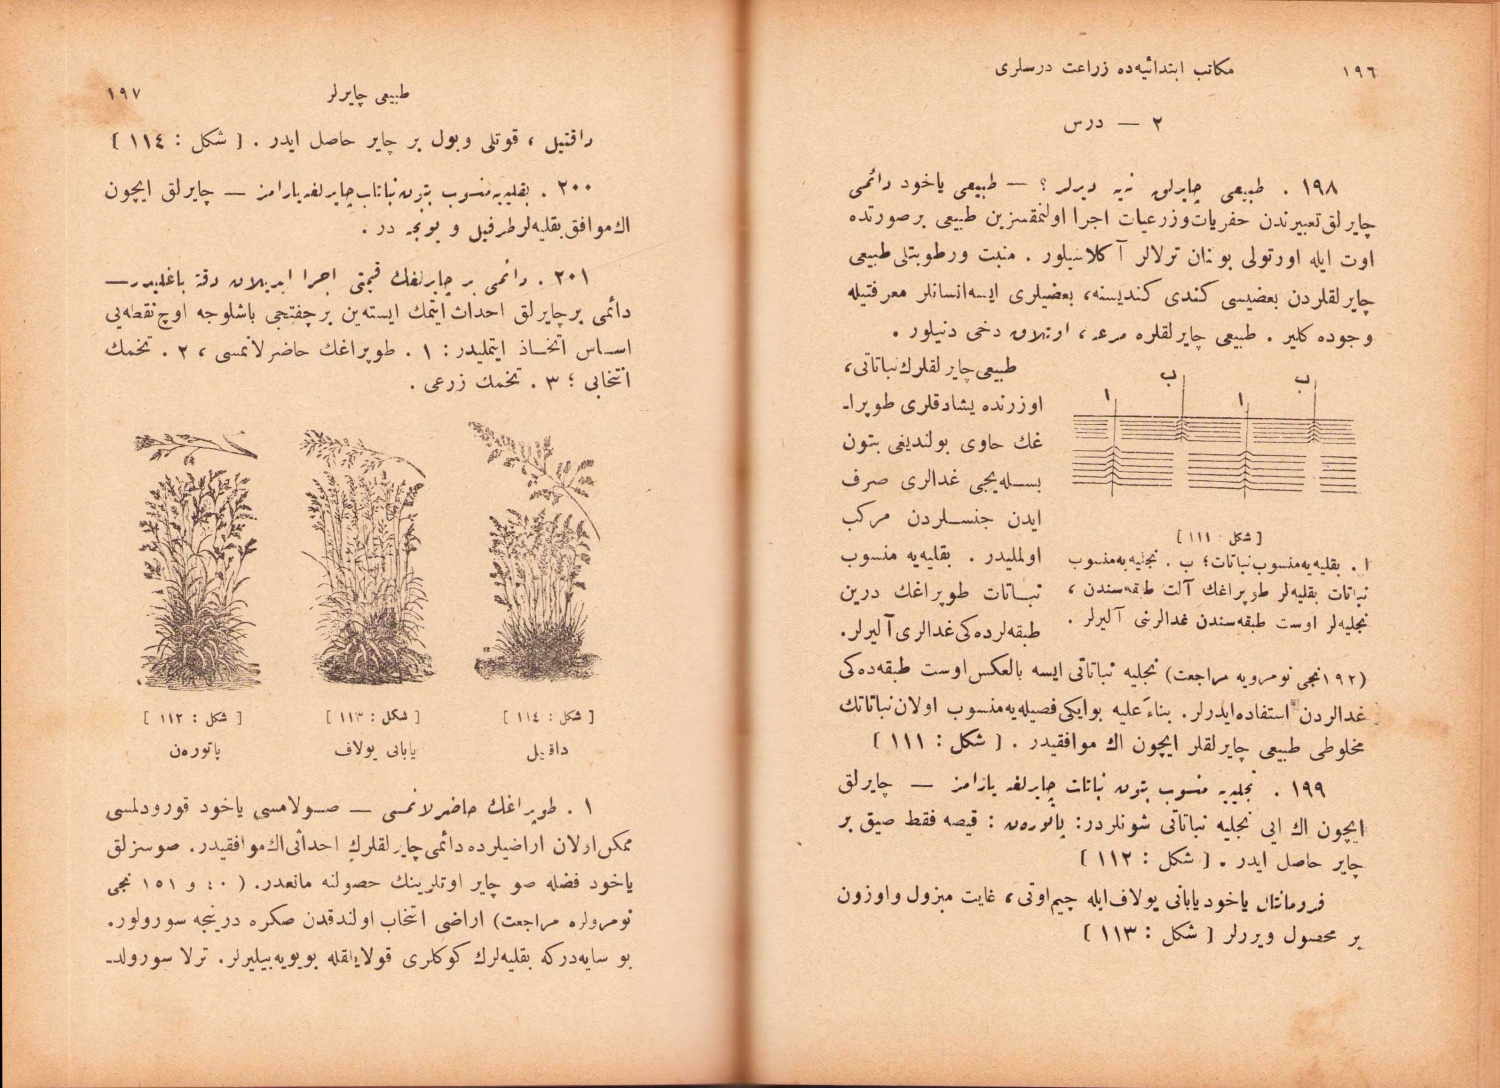 ١٩٦
مكاتب ابتدائیه‌ده زراعت درسلری
٢ — درس
١٩٨ . طبیعی چایرلق نه‌یه دیرلر ؟ — طبیعی یاخود دائمی
چایرلق تعبیرندن حفریات وزرعیات اجرا اولنمقسزین طبیعی برصورتده
اوت ایله اورتولی بولنان ترلالر آكلاشیلور . منبت ورطوبتلی طبیعی
چایرلقلردن بعضیسی كندی كندیسنه، بعضیلری ایسه‌انسانلر معرفتیله
وجوده كلیر . طبیعی چایرلقلره مرعه ، اوتلاق دخی دنیلور .
طبیعی چایرلقلرك نباتاتی ،
اوزرنده یشادقلری طوپرا-
غك حاوی بولندیغی بتون
بسله‌ییجی غدالری صرف
ایدن جنسلردن مركب
اولملیدر . بقلیه‌یه منسوب
نباتات طوپراغك درین
طبقه‌لرده‌كی غدالری آلیرلر.
ا ب ا ب
[ شكل : ١١١ ]
ا . بقلیه‌یه‌منسوب نباتات؛ ب . نجلیه‌یه‌منسوب
نباتات بقلیه‌لر طوپراغك آلت طبقه‌سندن ،
نجلیه‌لر اوست طبقه‌سندن غدالرینی آلیرلر .
(١٩٢نجی نومرویه مراجعت) نجلیه نباتاتی ایسه بالعكس اوست طبقه‌ده‌كی
غدالردن استفاده‌ایدرلر. بناءً علیه بوایكی فصیله‌یه‌منسوب اولان نباتاتك
مخلوطی طبیعی چایرلقلر ایچون اك موافقیدر . [ شكل : ١١١ ]
١٩٩ . نجلیه‌یه منسوب بتون نباتات چایرلغه یارامز — چایرلق
ایچون اك ایی نجلیه نباتاتی شونلردر: پاتورەن : قیصه فقط صیق بر
چایر حاصل ایدر . [ شكل : ١١٢ ]
فرومانتال یاخود یابانی یولاف ایله چیم‌اوتی ، غایت مبزول واوزون
بر محصول ویررلر [ شكل : ١١٣ ]
طبیعی چایرلر
١٩٧
داقتیل ، قوتلی وبول بر چایر حاصل ایدر . [ شكل : ١١٤ ]
٢٠٠ . بقلیه‌یه‌منسوب بتون نباتات‌چایرلغه‌یارامز — چایرلق ایچون
اك‌موافق بقلیه‌لرطرفیل و یونجه در .
٢٠١ . دائمی بر چایرلغك قیمتی اجرا ایدیلان دقته باغلیدر—
دائمی برچایرلق احداث ایتمك ایسته‌ین برچفتجی باشلوجه اوچ نقطه‌یی
اساس اتخاذ ایتملیدر : ١ . طوپراغك حاضرلانمسی ، ٢ . تخمك
انتخابی ؛ ٣ . تخمك زرعی .
[ شكل : ١١٤ ] [ شكل : ١١٣ ] [ شكل : ١١٢ ]
داقتیل یابانی یولاف پاتورەن
١ . طوپراغك حاضرلانمسی — صولامسی یاخود قورودلمسی
ممكن اولان اراضیلرده دائمی چایرلقلرك احداثی اك‌موافقیدر. صوسزلق
یاخود فضله صو چایر اوتلرینك حصولنه مانعدر. ( ٤٠ و ١٥١ نجی
نومرولره مراجعت) اراضی انتخاب اولندقدن صكره درینجه سورولور.
بو سایه‌دركه بقلیه‌لرك كوكلری قولایلقله بویویه‌بیلیرلر. ترلا سورولد-